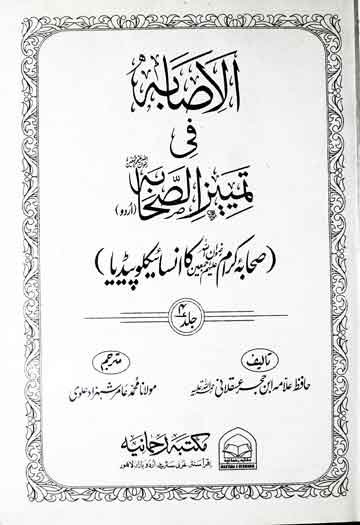 الاصابہ
فی
تمییز الصحابہ (اردو)
(صحابہ کرام رضوان اللہ علیہم اجمعین کا انسائیکلو پیڈیا)
جلد ۴
تالیف
حافظ علامہ ابن حجر عسقلانی رحمۃ اللہ علیہ
مترجم
مولانا محمد عامر شہزاد علوی
مکتبہ رحمانیہ
اقرأ سنٹر غزنی سٹریٹ اردو بازار لاہور